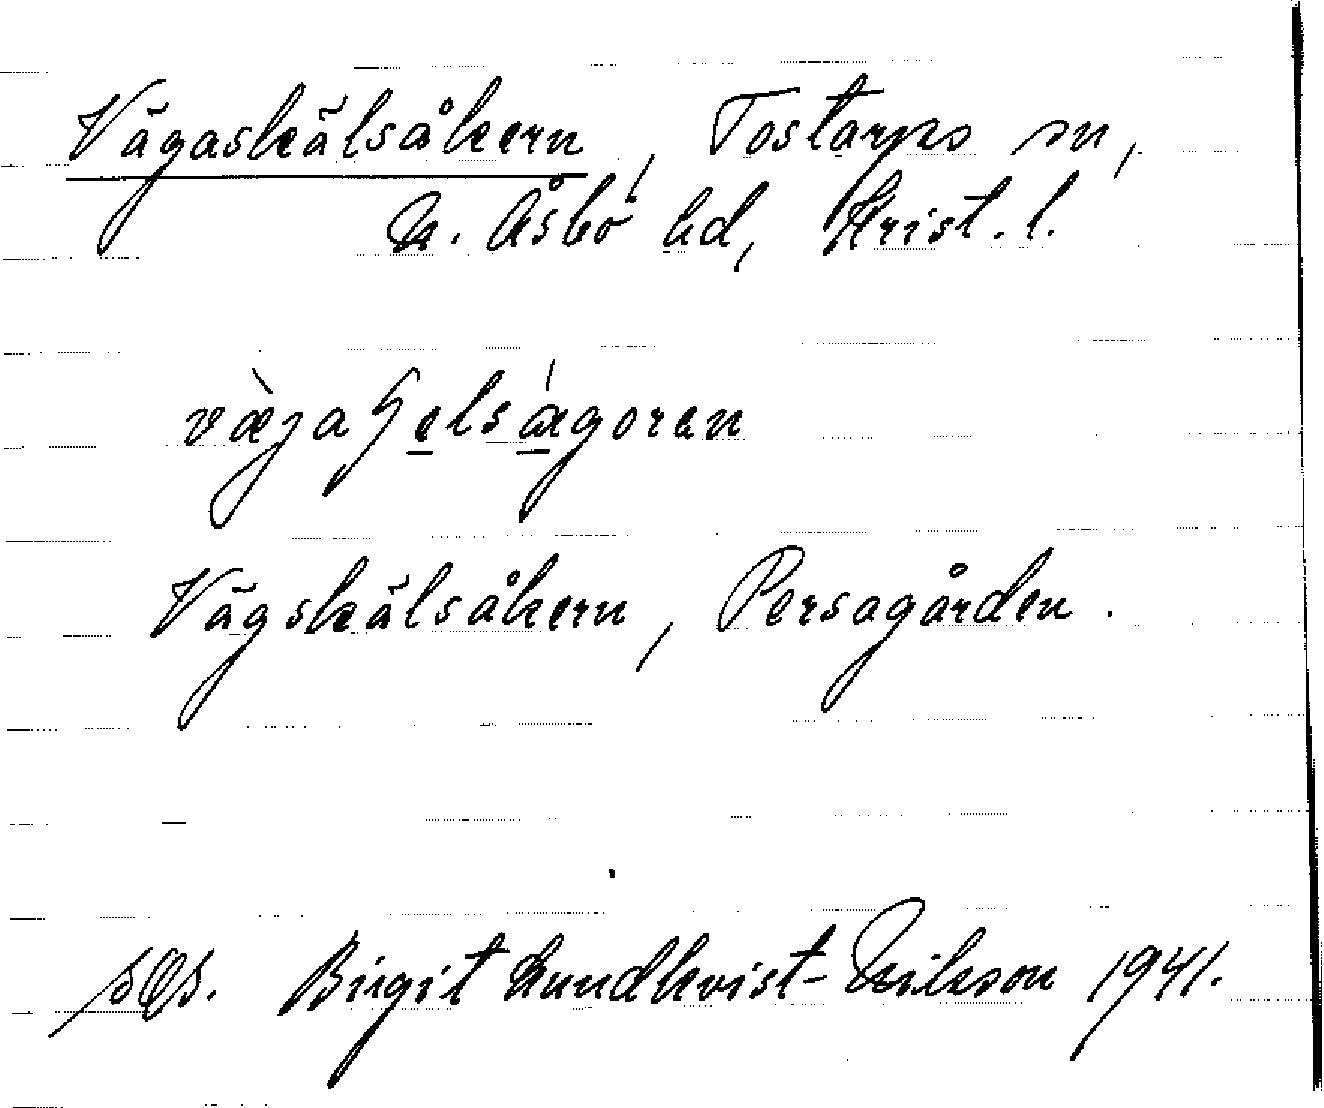 Vägaskälsåkern, Tostarps sn,
N. Åsbo hd, Krist. l.
væ̀ʒaɧelsǽgoren
Vägskälsåkern, Persagården.
Birgit Lundkvist-Nilsson 1941.